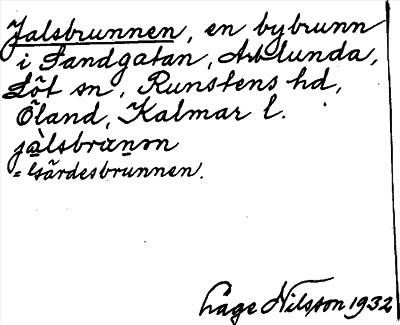 Jalsbrunnen, en bybrunn
i Sandgatan, Arblunda,
Löt sn, Runstens hd,
Öland, Kalmar l.
jàlsbranon
= gärdesbrunnen.
Låge Nilsson 1932